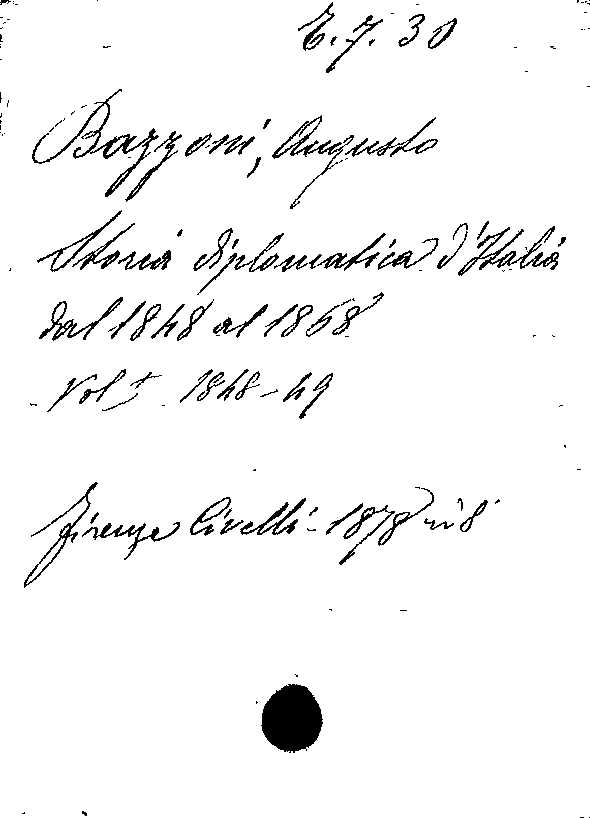 E. 7. 30
Bazzoni, Augusto
Storia diplomatica d'Italia
dal 1848 al 1868
Vol I 1848-49
Firenze Civelli - 1878 in 8°